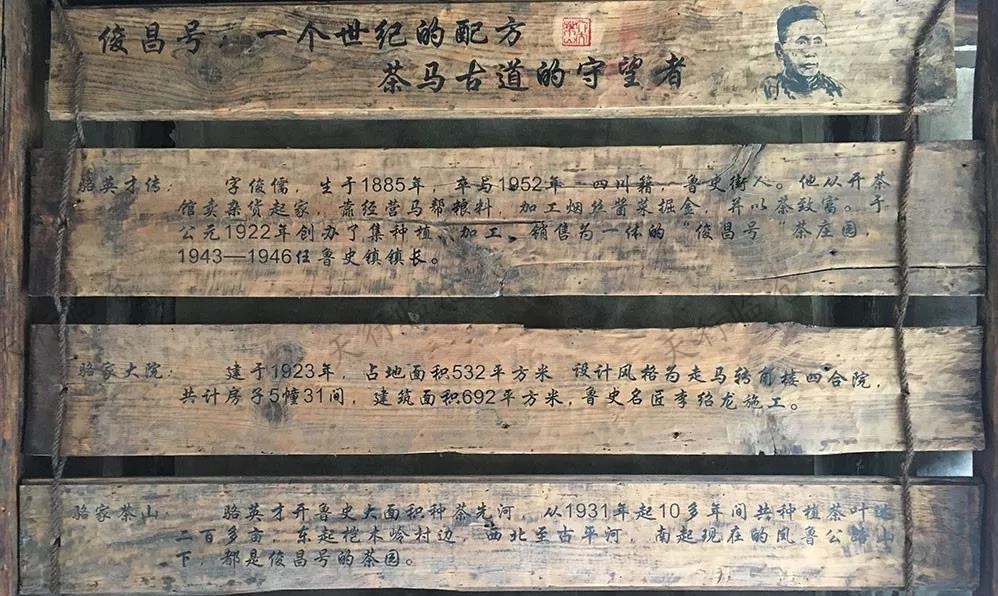 俊昌号:一个世纪的配方
茶马古道的守望者
骆英才传: 字俊儒,生于1885年,卒与1952年 四川籍,鲁史街人。他从开茶
馆卖杂货起家,靠经营马帮粮料,加工烟丝酱菜掘金,并以茶致富。于
公元1922年创办了集种植、加工、销售为一体的“俊昌号”茶庄园,
1943—1946任鲁史镇镇长。
骆家大院: 建于1923年,占地面积532平方米 设计风格为走马转角楼四合院,
共计房子5幢31间,建筑面积692平方米,鲁史名匠李绍龙施工。
骆家茶山: 骆英才开鲁史大面积种茶先河,从1931年起10多年间共种植茶叶达
二百多亩,东起桤木岭村边,西北至古平河,南起现在的凤鲁公路山
下,都是俊昌号的茶园。
天行临沧
天行临沧